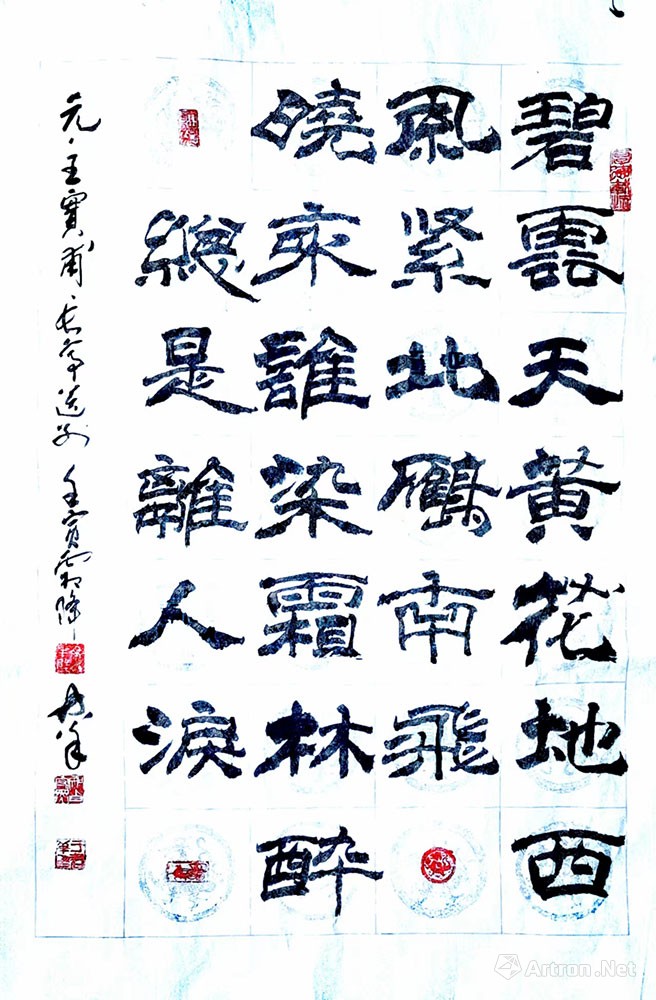 碧雲天黃花地西
風緊北鴈南飛
曉來誰染霜林醉
總是離人淚
元·王實甫長亭送别 壬寅霜降
Artron.Net